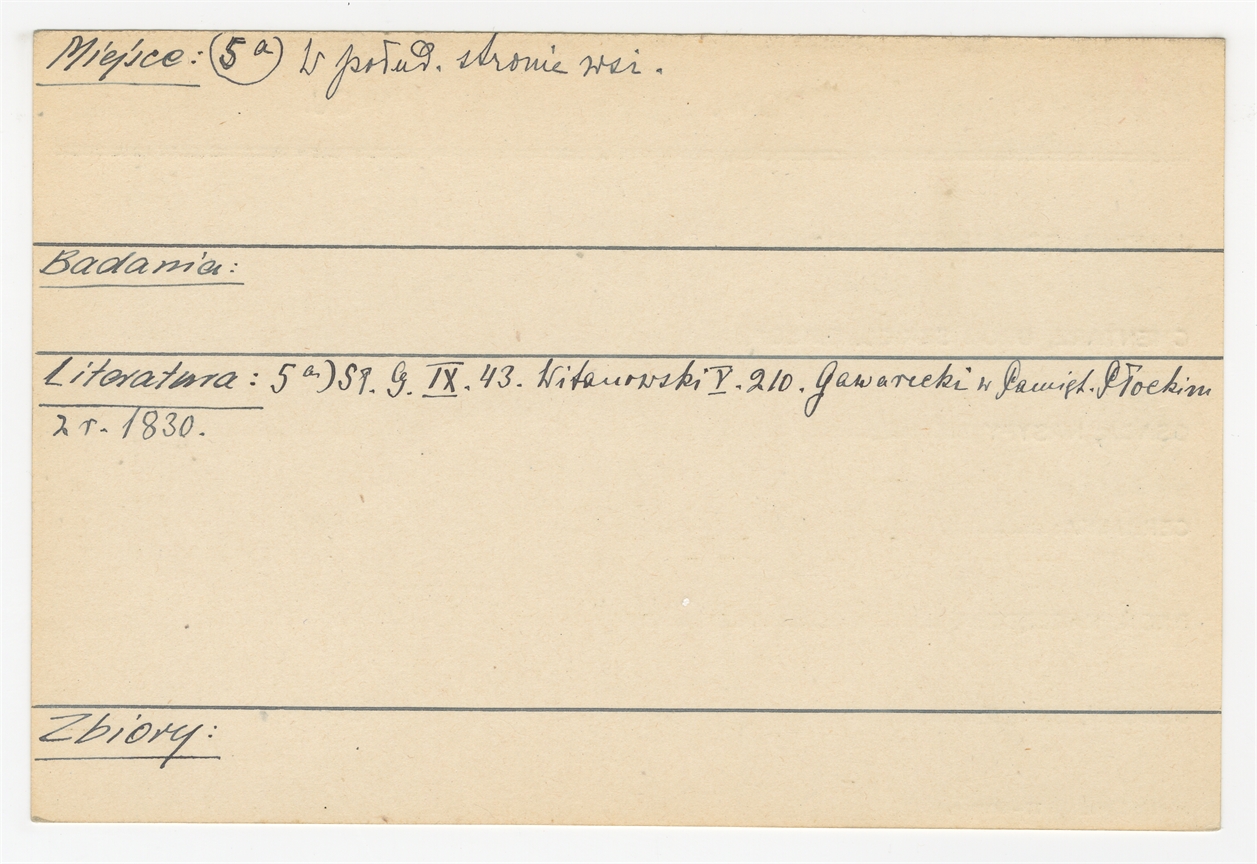 Miejsce: (5ª) W połud. stronie wsi.
Badania:
Literatura: 5ª) Sł. G. IX. 43. Witanowski V. 210. Gawarecki w Pamięt. Płockim
z r. 1830.
Zbiory: